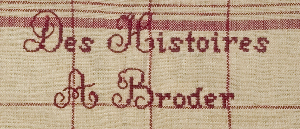 Des Histoires
A Broder